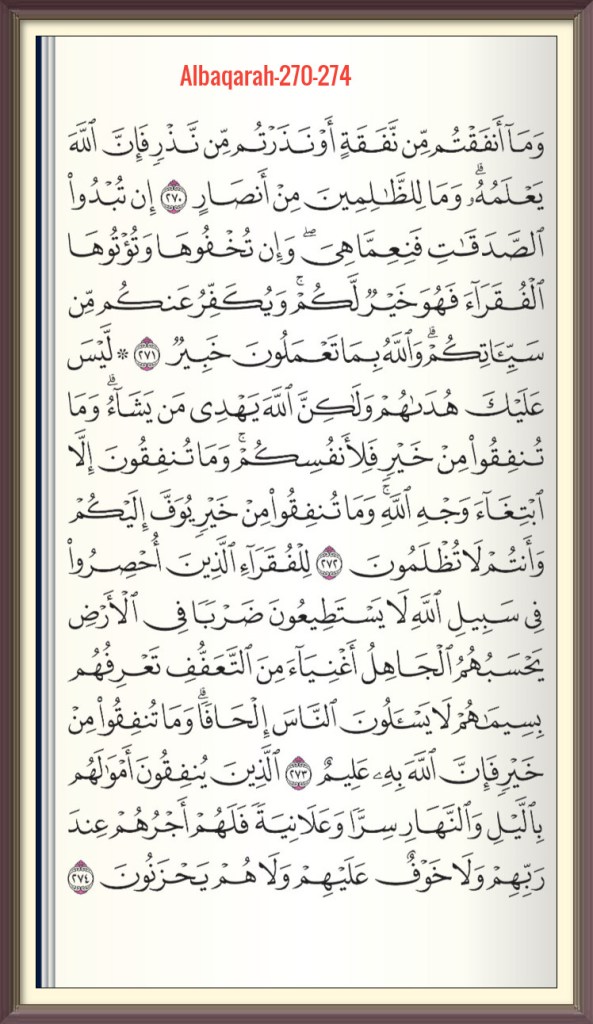 Albaqarah-270-274
وَمَآ أَنفَقۡتُم مِّن نَّفَقَةٍ أَوۡ نَذَرۡتُم مِّن نَّذۡرٖ فَإِنَّ ٱللَّهَ
يَعۡلَمُهُۥۗ وَمَا لِلظَّٰلِمِينَ مِنۡ أَنصَارٍ ٢٧٠ إِن تُبۡدُواْ
ٱلصَّدَقَٰتِ فَنِعِمَّا هِيَۖ وَإِن تُخۡفُوهَا وَتُؤۡتُوهَا
ٱلۡفُقَرَآءَ فَهُوَ خَيۡرٞ لَّكُمۡۚ وَيُكَفِّرُ عَنكُم مِّن
سَيِّـَٔاتِكُمۡۗ وَٱللَّهُ بِمَا تَعۡمَلُونَ خَبِيرٞ ٢٧١ ۞ لَّيۡسَ
عَلَيۡكَ هُدَىٰهُمۡ وَلَٰكِنَّ ٱللَّهَ يَهۡدِي مَن يَشَآءُۗ وَمَا
تُنفِقُواْ مِنۡ خَيۡرٖ فَلِأَنفُسِكُمۡۚ وَمَا تُنفِقُونَ إِلَّا
ٱبۡتِغَآءَ وَجۡهِ ٱللَّهِۚ وَمَا تُنفِقُواْ مِنۡ خَيۡرٖ يُوَفَّ إِلَيۡكُمۡ
وَأَنتُمۡ لَا تُظۡلَمُونَ ٢٧٢ لِلۡفُقَرَآءِ ٱلَّذِينَ أُحۡصِرُواْ
فِي سَبِيلِ ٱللَّهِ لَا يَسۡتَطِيعُونَ ضَرۡبٗا فِي ٱلۡأَرۡضِ
يَحۡسَبُهُمُ ٱلۡجَاهِلُ أَغۡنِيَآءَ مِنَ ٱلتَّعَفُّفِ تَعۡرِفُهُم
بِسِيمَٰهُمۡ لَا يَسۡـَٔلُونَ ٱلنَّاسَ إِلۡحَافٗاۗ وَمَا تُنفِقُواْ مِنۡ
خَيۡرٖ فَإِنَّ ٱللَّهَ بِهِۦ عَلِيمٌ ٢٧٣ ٱلَّذِينَ يُنفِقُونَ أَمۡوَٰلَهُم
بِٱلَّيۡلِ وَٱلنَّهَارِ سِرّٗا وَعَلَانِيَةٗ فَلَهُمۡ أَجۡرُهُمۡ عِندَ
رَبِّهِمۡ وَلَا خَوۡفٌ عَلَيۡهِمۡ وَلَا هُمۡ يَحۡزَنُونَ ٢٧٤